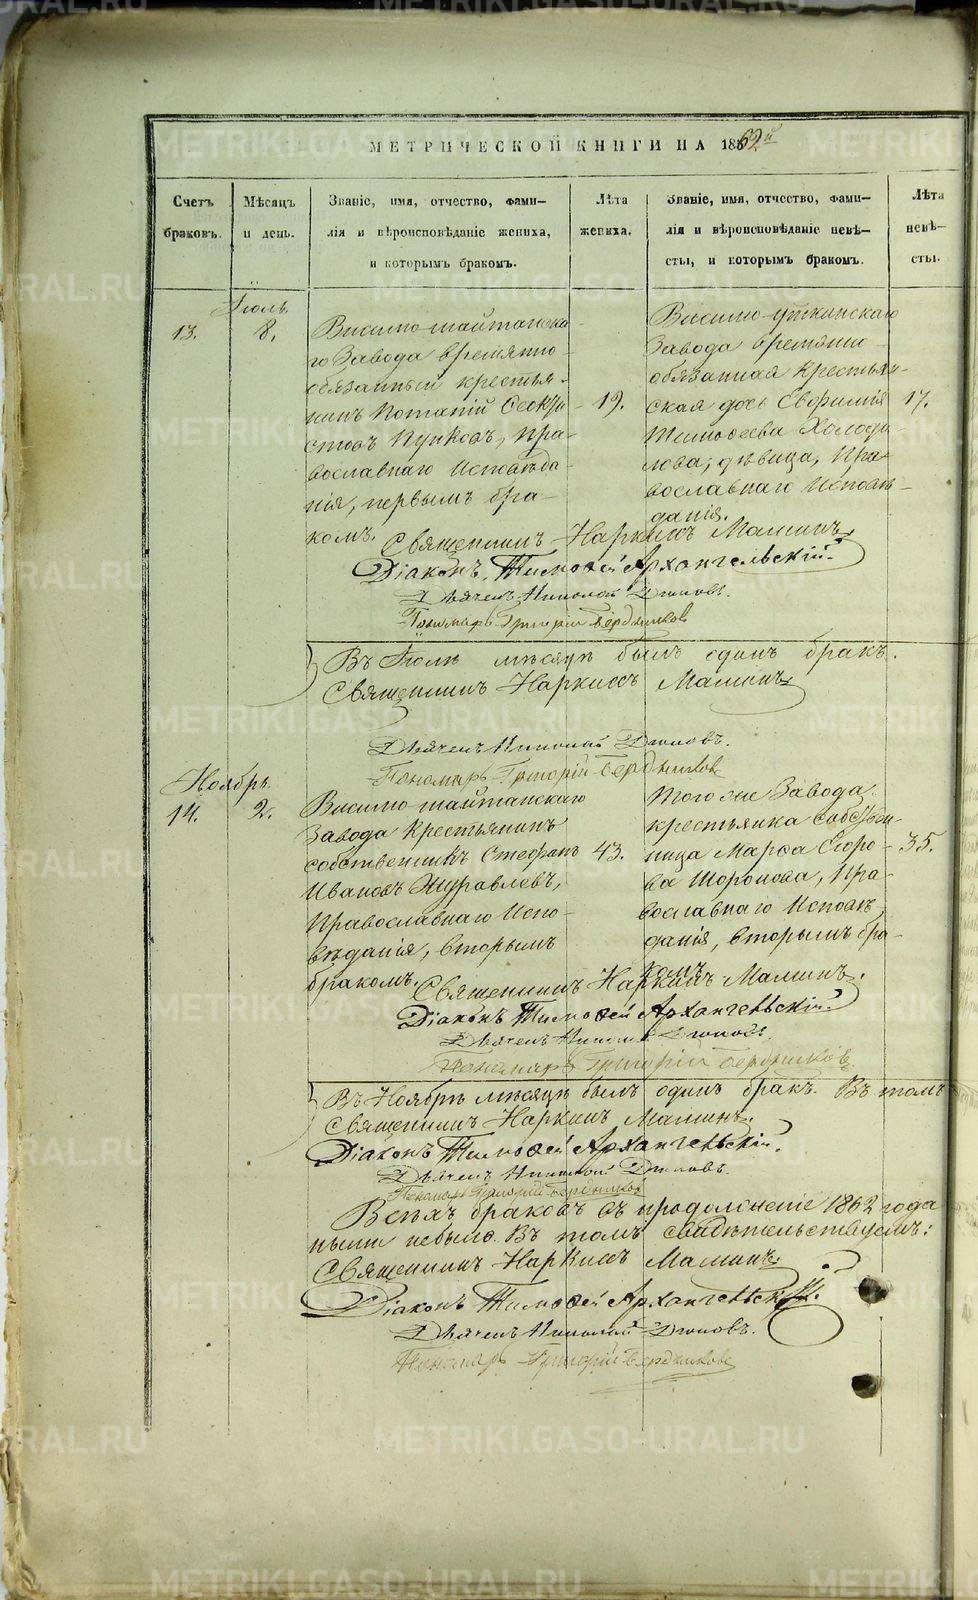 МЕТРИЧЕСКОЙ КНИГИ НА 1862й
Счетъ браковъ.
Мѣсяцъ и день.
Званіе, имя, отчество, фами-
лія и вѣроисповѣданіе жениха,
и которымъ бракомъ.
Лѣта жениха.
Званіе, имя, отчество, фами-
лія и вѣроисповѣданіе невѣ-
сты, и которымъ бракомъ.
Лѣта невѣ-
сты.
Іюль
13.
8.
Висимо-шайтанска-
го Завода временно-
обязанный крестья-
нинъ Потапій Ѳеокти-
стовъ Пупковъ, пра-
вославнаго Исповѣда-
нія, первымъ бра-
комъ.
19.
Висимо-уткинскаго
Завода временно-
обязанная Крестьян-
ская дочь Евфимія
Тимоѳеева Холоди-
лова, дѣвица, Пра-
вославнаго Исповѣ-
данія.
17.
Священникъ Наркисъ Маминъ
Діаконъ Тимоѳей Архангельскій.
Дьячекъ Николай
Пономарь Григорій Бердниковъ
Въ Іюлѣ мѣсяцѣ былъ одинъ бракъ.
Священникъ Наркисъ Маминъ
Дьячекъ Николай
Пономарь Григорій Бердниковъ
Ноябрь
14.
2.
Висимо-шайтанскаго
Завода Крестьянинъ
собственникъ Стефанъ
Ивановъ Журавлевъ,
Православнаго Испо-
вѣданія, вторымъ
бракомъ.
43.
Того же Завода
крестьянка собствен-
ница Марѳа Егоро-
ва Шоронова, Пра-
вославнаго Исповѣ-
данія, вторымъ бра-
комъ.
35.
Священникъ Наркисъ Маминъ.
Діаконъ Тимоѳей Архангельскій
Дьячекъ Николай
Пономарь Григорій Бердниковъ
Въ Ноябрѣ мѣсяцѣ былъ одинъ бракъ. Въ томъ
Священникъ Наркисъ Маминъ.
Діаконъ Тимоѳей Архангельскій.
Дьячекъ Николай
Пономарь Григорій Бердниковъ
Всѣхъ браковъ въ продолженіе 1862 года
небыло. Въ томъ свидѣтельствуемъ:
Священникъ Наркисъ Маминъ
Діаконъ Тимоѳей Архангельскій.
Дьячекъ Николай
Пономарь Григорій Бердниковъ
METRIKI.GASO-URAL.RU